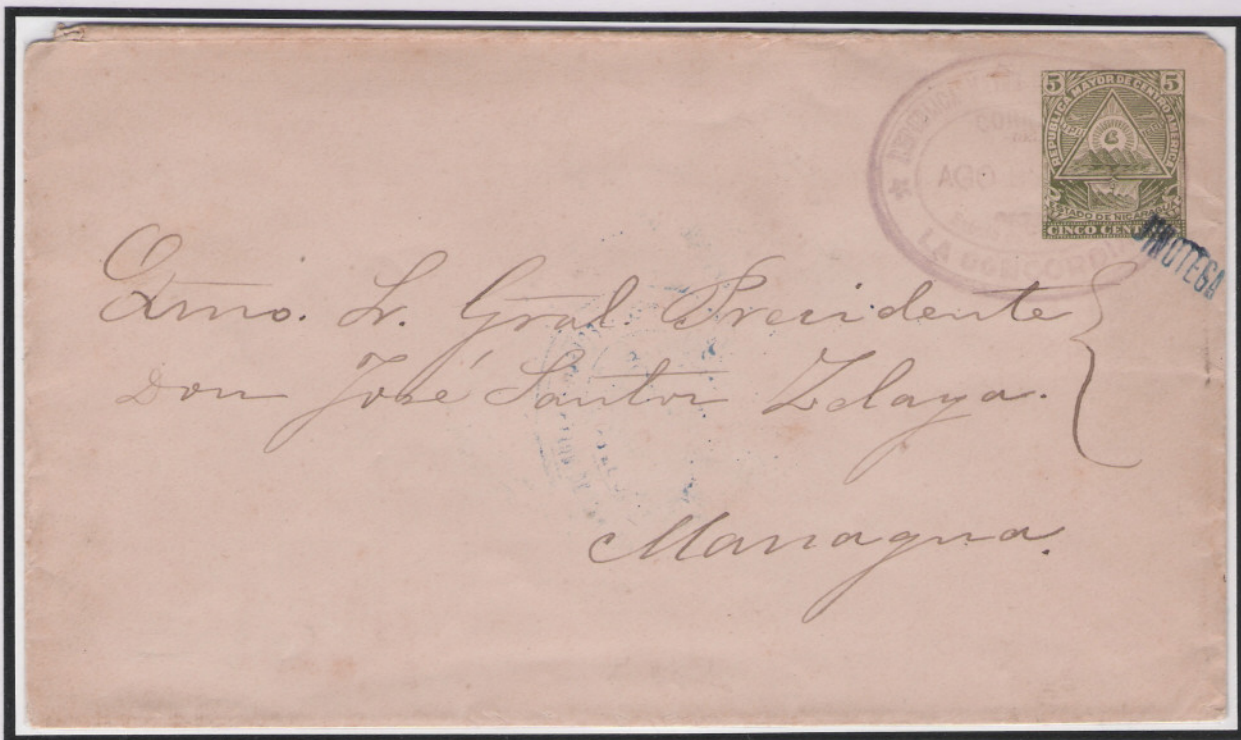 5 5
REPUBLICA MAYOR DE CENTROAMERICA
ESTADO DE NICARAGUA
CINCO CENT
AGO
LA CONCORDIA
JINOTEGA
Exmo. Sr. Gral. Presidente
Don José Santos Zelaya.
Managua.